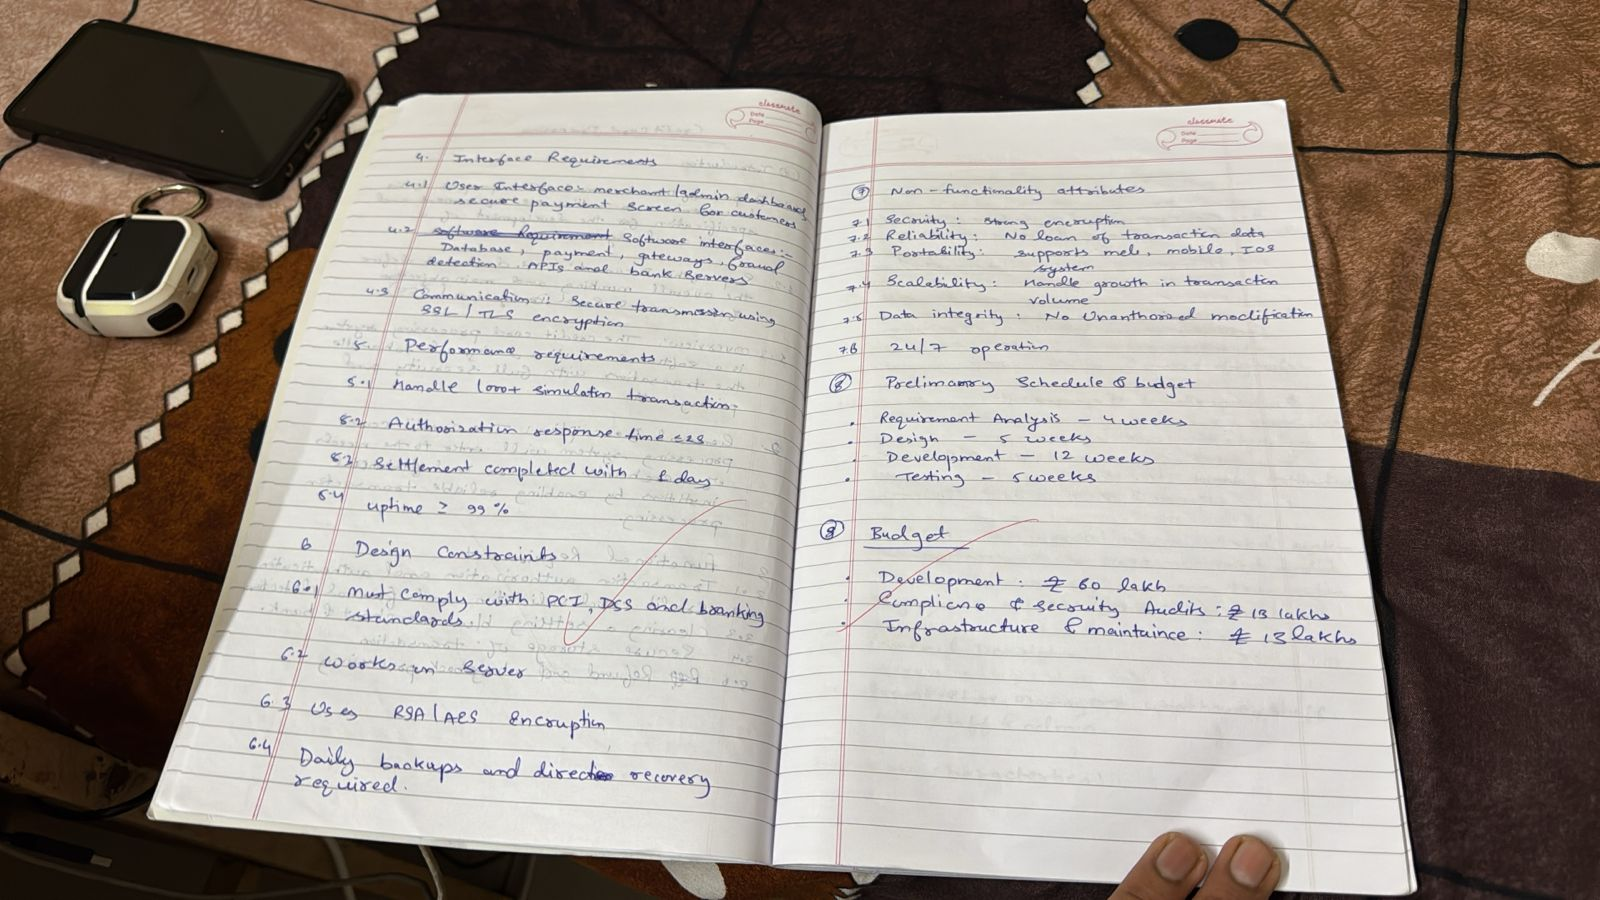 classmate
Date
Page
4. Interface Requirements
4.1 User Interface:- merchant/admin dashboard,
secure payment screen for customers
4.2 Software Requirement Software interfaces:-
Database, payment, gateways, fraud
detection, APIs and bank Servers
4.3 Communication: Secure transmission using
SSL/TLS encryption
5. Performance requirements
5.1 Handle 1000+ simulatin transaction.
5.2 Authorization response time ≤2s
5.3 Settlement completed with 1 day
5.4 uptime ≥ 99%
6 Design Constraints
6.1 Must comply with PCI, DSS and branking
standards.
6.2 Works in Server
6.3 Uses RSA/AES Encruption
6.4 Daily backups and recovery
required.
classmate
Date
Page
7 Non-functionality attributes
7.1 Security: strong encruption
7.2 Reliability: No loan of transaction data
7.3 Portability: supports , mobile, IOS
system
7.4 Scalability: Handle growth in transactin
volume
7.5 Data integrity: No Unanthorized modlification
7.6 24/7 operation
8 Prelimanary Schedule & budget
• Requirement Analysis – 4 weeks
• Design – 5 weeks
• Development – 12 weeks
• Testing – 5 weeks
Budget
• Development: ₹ 60 lakh
• Complicne & Security Audits: ₹ 13 lakhs
• Infrastructure & maintaince: ₹ 13 lakhs